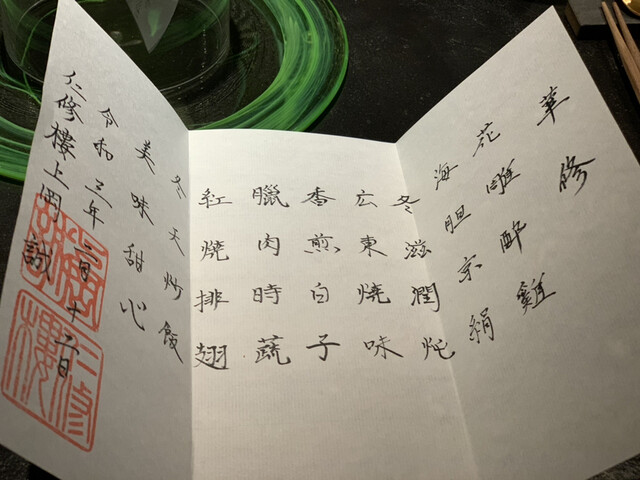 華修
花雕酔雞
海胆京絹
冬滋潤炖
広東焼味
香煎白子
臘肉時蔬
紅焼排翅
冬天炒飯
美味甜心
令和三年二月十二日
仁修樓上岡誠
仁修樓